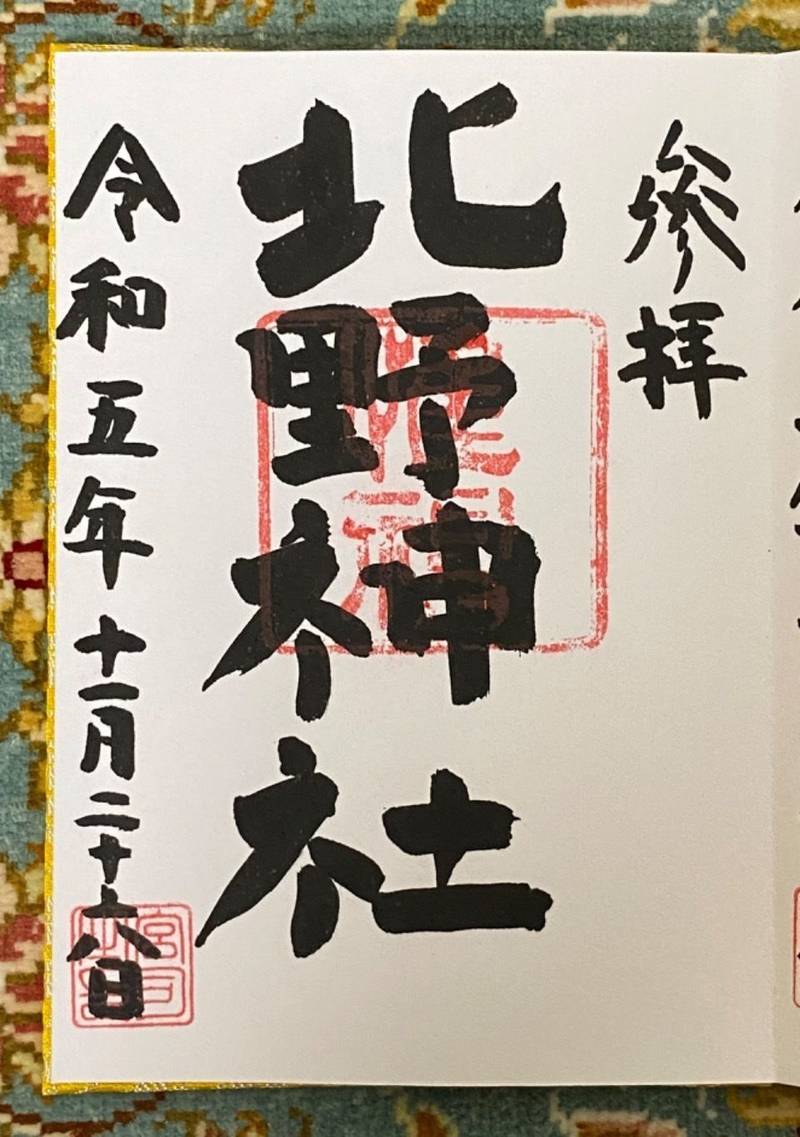 参拝
北野神社
令和五年十一月二十六日